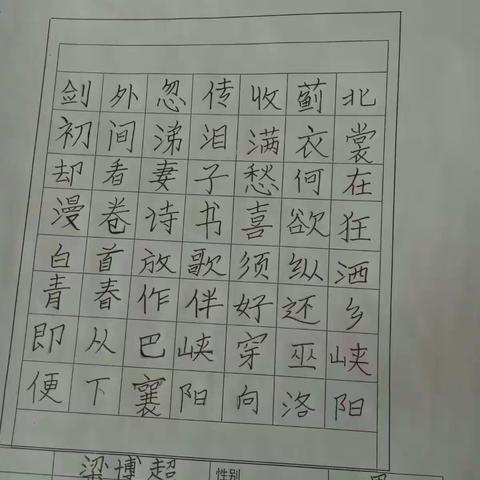 剑外忽传收蓟北
初间涕泪满衣裳
却看妻子愁何在
漫卷诗书喜欲狂
白首放歌须纵洒
青春作伴好还乡
即从巴峡穿巫峡
便下襄阳向洛阳
梁博超 性别